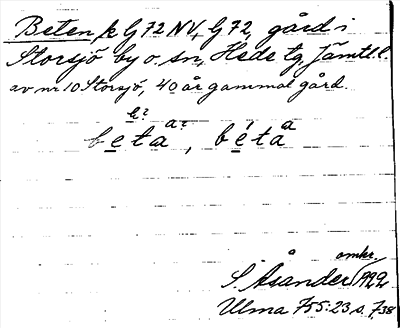 Beten, k G 72 NV, G 72, gård i
Storsjö by o. sn, Hede tg, Jämtl. l.
av nr 10 Storsjö, 40 år gammal gård.
beta, béta
S. Åsander omkr. 1922
Ulma 755:23 s. 738